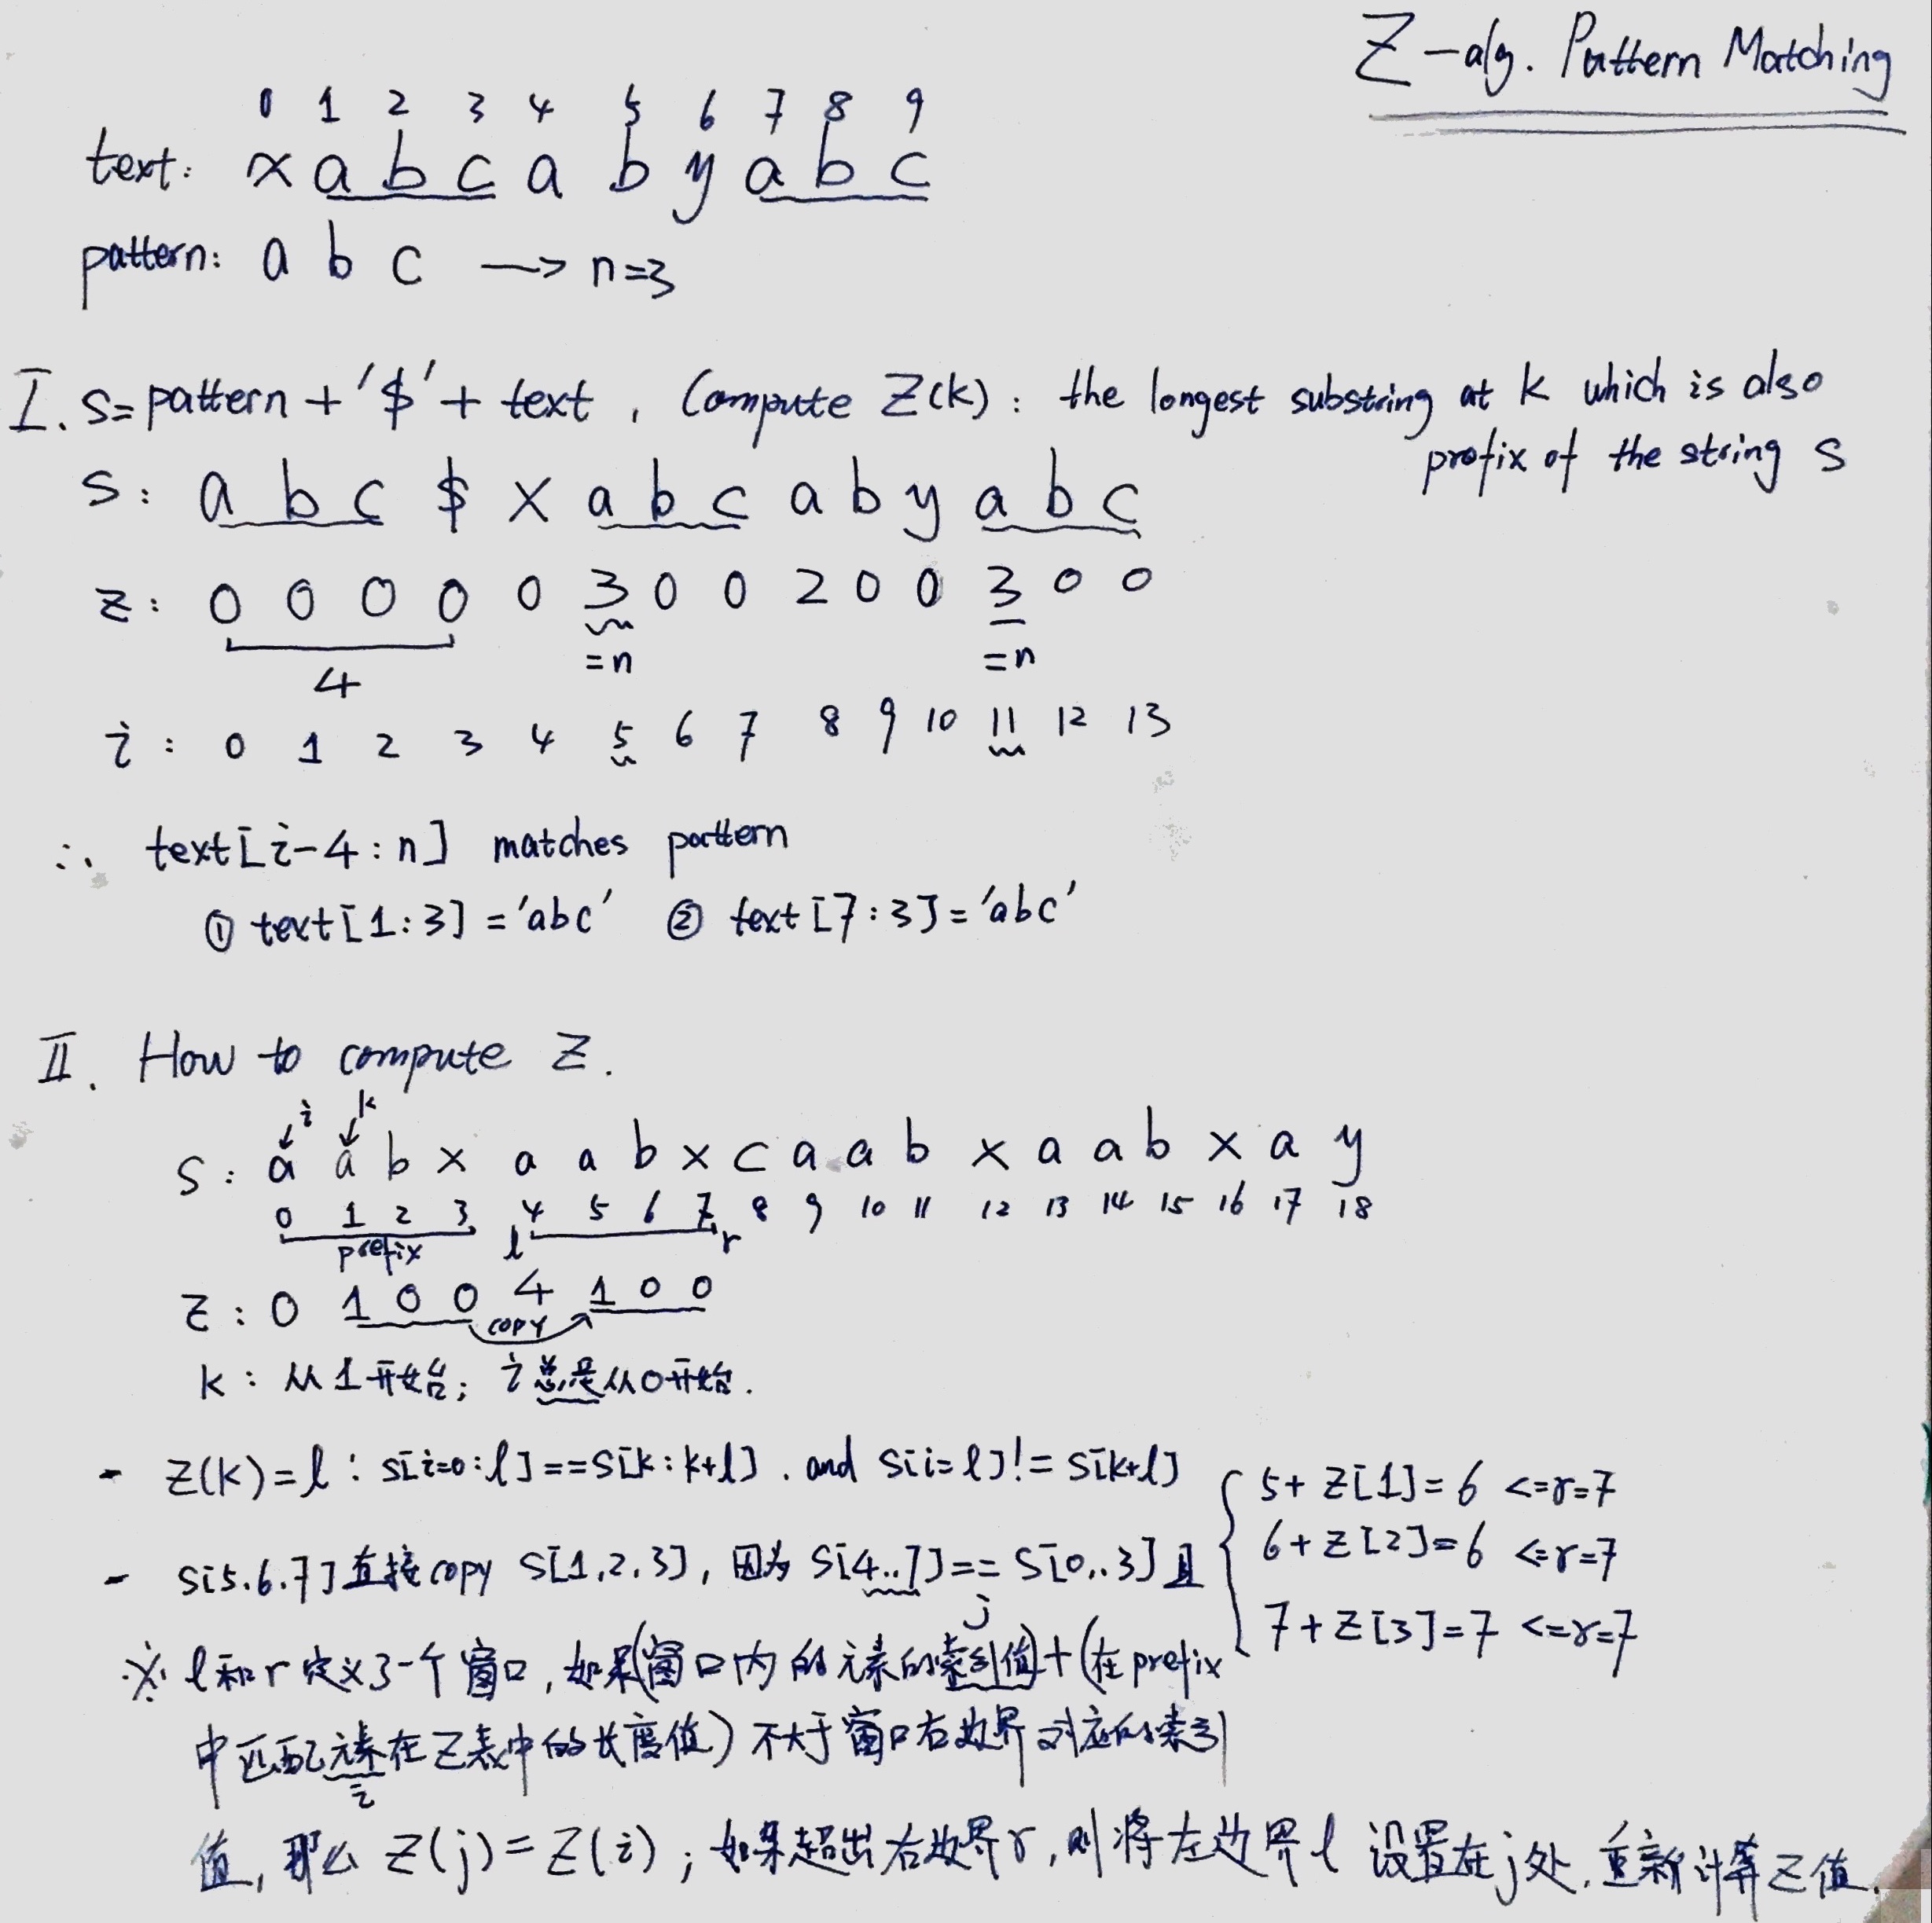 Z-alg. Pattern Matching
0 1 2 3 4 5 6 7 8 9
text: x a b c a b y a b c
pattern: a b c → n=3
I. S= pattern + '$' + text, Compute Z(k): the longest substring at k which is also
prefix of the string S
S: a b c $ x a b c a b y a b c
z: 0 0 0 0 0 3 0 0 2 0 0 3 0 0
4 =n =n
i: 0 1 2 3 4 5 6 7 8 9 10 11 12 13
∴ text[i-4:n] matches pattern
① text[1:3]='abc' ② text[7:3]='abc'
II. How to compute Z.
i k
S: a a b x a a b x c a a b x a a b x a y
0 1 2 3 4 5 6 7 8 9 10 11 12 13 14 15 16 17 18
prefix l r
z: 0 1 0 0 4 1 0 0
copy
k: 从1开始; i总是从0开始.
- Z(k)=l: S[i=0:l]==S[k:k+l]. and S[i=l]!=S[k+l]
5+Z[1]=6 <=r=7
6+Z[2]=6 <=r=7
7+Z[3]=7 <=r=7
- S[5.6.7]直接copy S[1,2,3], 因为 S[4..7]==S[0..3]且
j
※ l和r定义了一个窗口, 如果(窗口内的元素的索引值)+(在prefix
中匹配元素在Z表中的长度值) 不大于窗口右边界对应的索引
i
值, 那么 Z(j)=Z(i); 如果超出右边界r, 则将左边界l 设置在j处, 重新计算Z值.